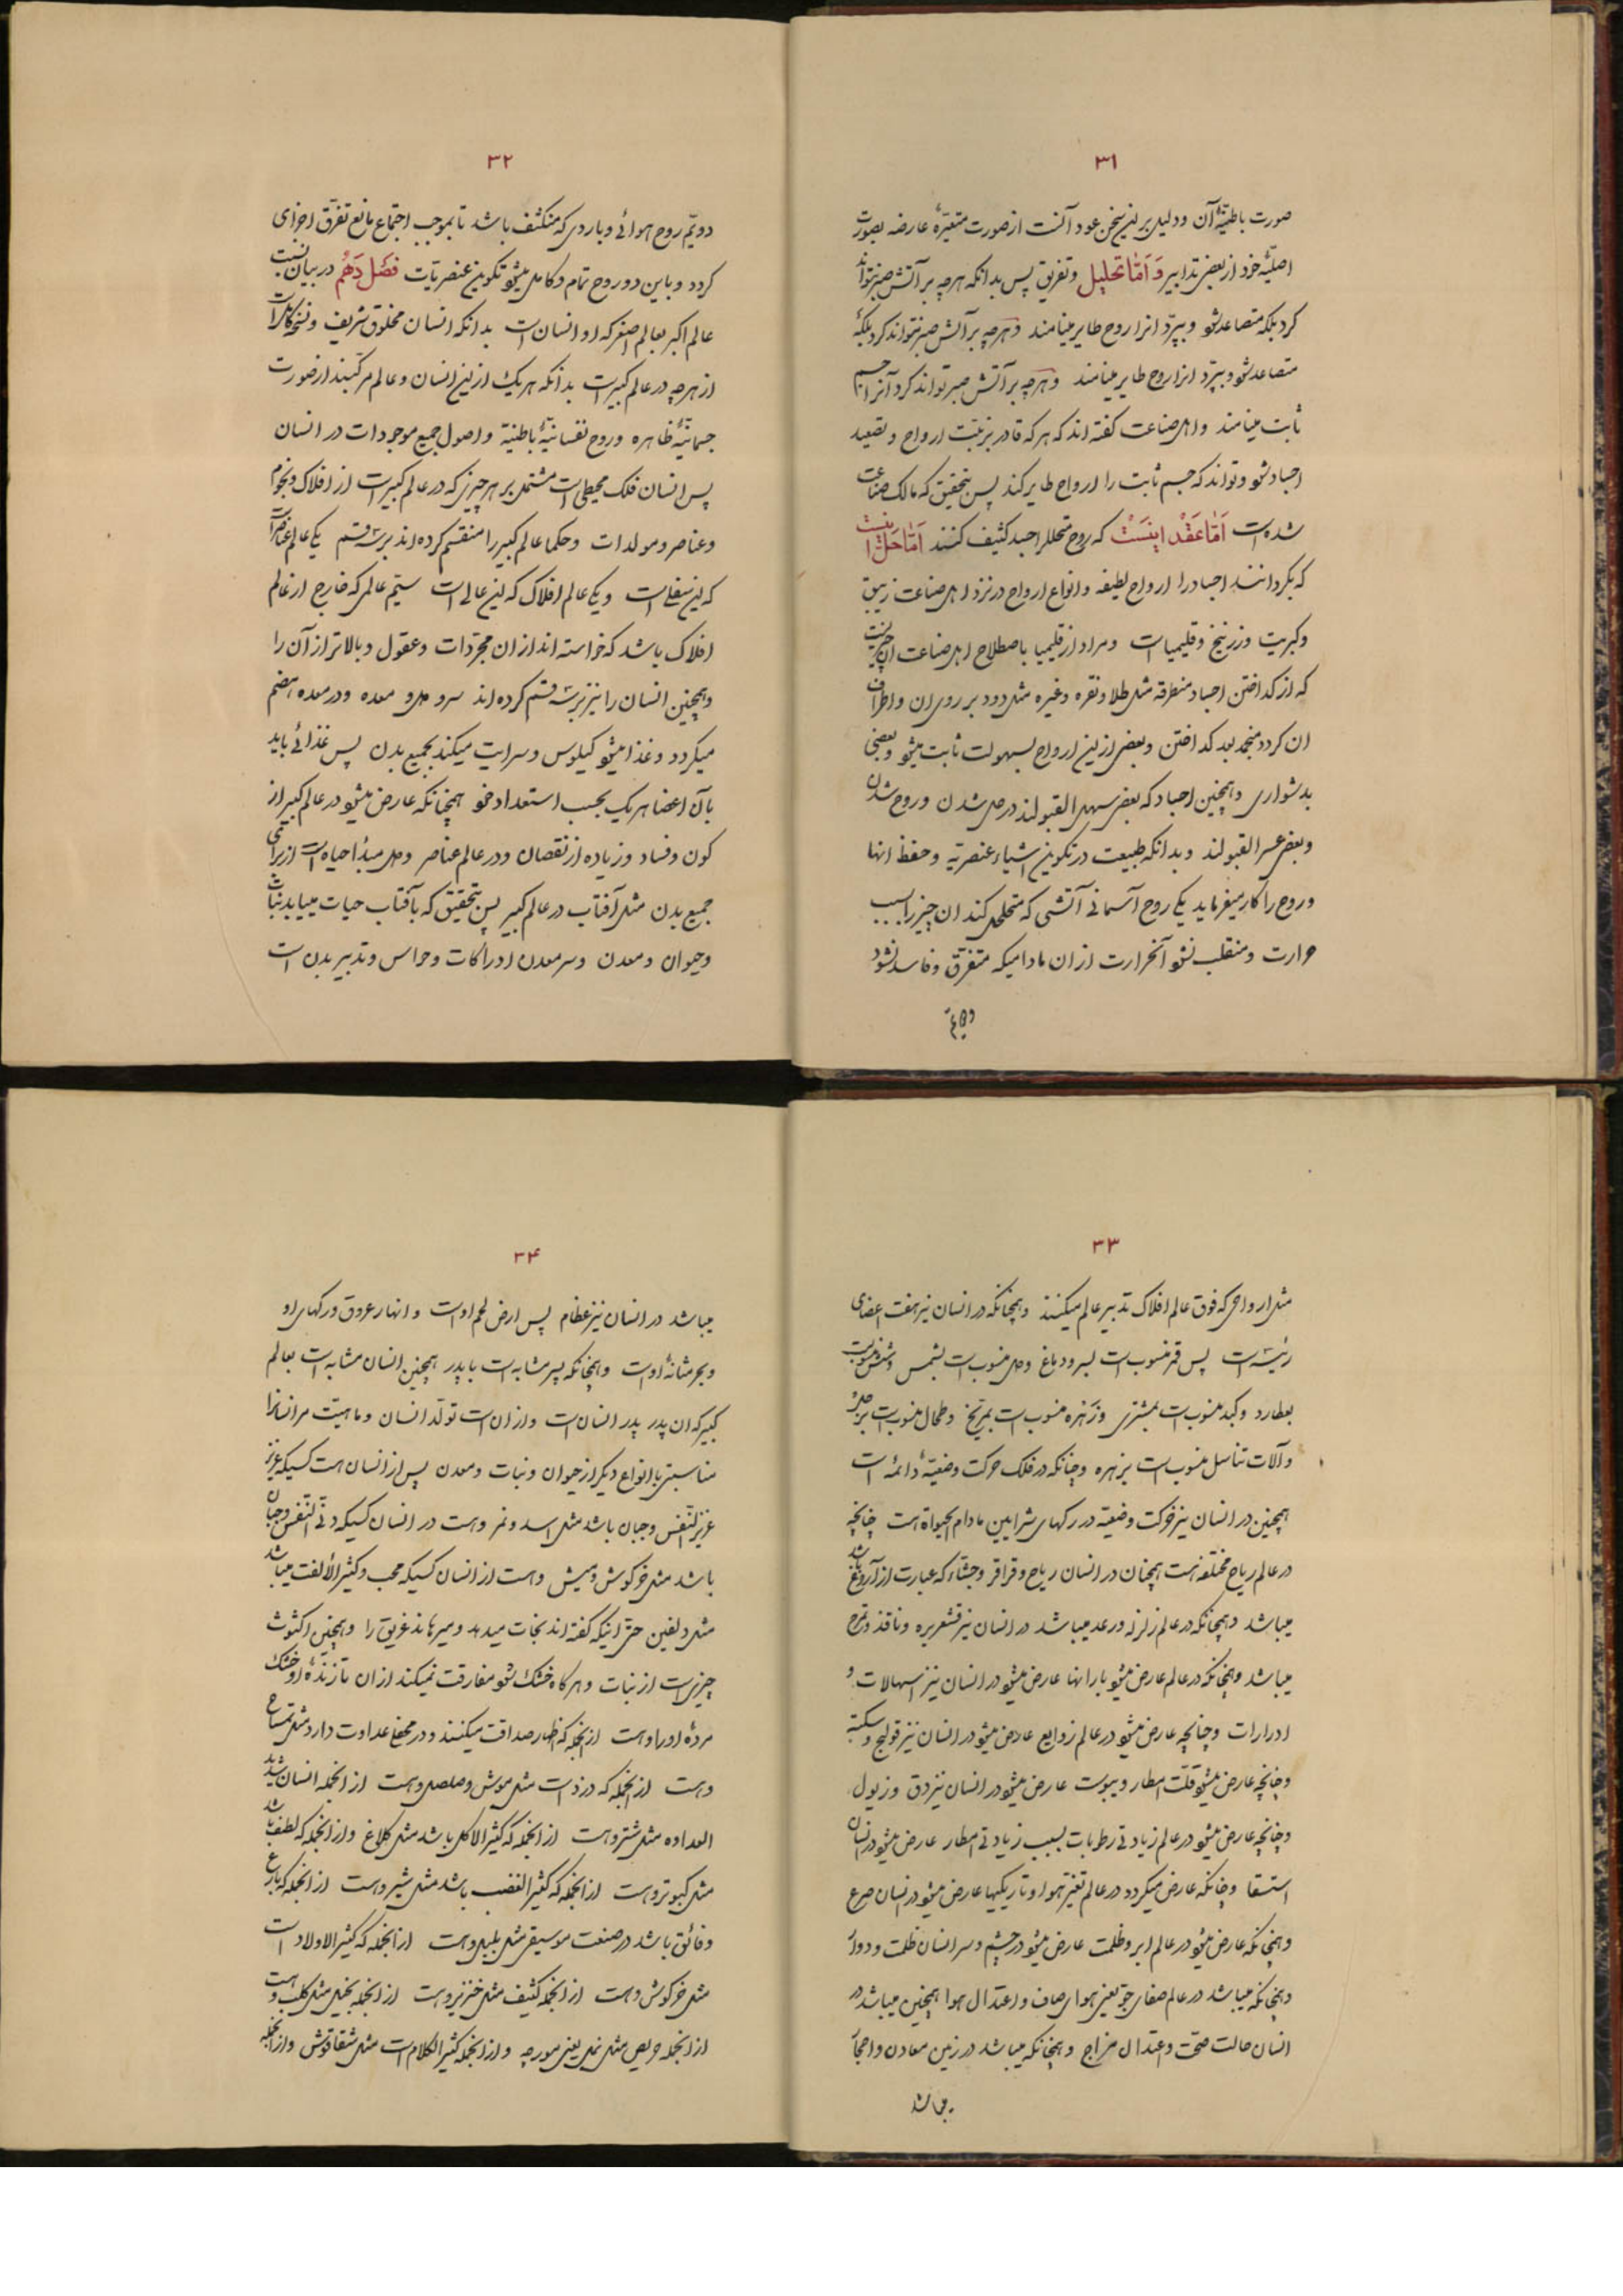 ۳۱
صورت باطنیّهٔ آن و دلیل بر این سخن عود آنست از صورت متغیّرهٔ عارضه بصورت
اصلیّه خود از بعض تدابیر وَ اَمّا تحلیل و تفریق پس بدانکه هرچه بر آتش صبر نتواند
کرد بلکه متصاعد شود و بپرّد انرا روح طایر مینامند و هرچه بر آتش صبر نتواند کرد بلکه
متصاعد شود و بپرّد انرا روح طایر مینامند و هرچه بر آتش صبر تواند کرد آنرا جسم
ثابت مینامند و اهل صناعت گفته اند که هر که قادر بر تثبیت ارواح و تصعید
اجساد شود و تواند که جسم ثابت را ارواح طایر کند پس بتحقیق که مالک صناعت
شده است اَمّا عَقْد اینَسْت که روح متحلل را جسد کثیف کنند اَمّا حَل اینست
که بگردانند اجساد را ارواح لطیفه و انواع ارواح در نزد اهل صناعت زیبق
و کبریت و زرنیخ و قلیمیاست و مراد از قلیمیا باصطلاح اهل صناعت ان چیزیست
که از گداختن اجساد منطرقه مثل طلا و نقره و غیره مثل دود بر روی ان و اطراف
ان گردد منجمد بعد گداختن و بعض از این ارواح بسهولت ثابت میشود و بعضی
بدشواری و همچنین اجساد که بعض سهل القبولند در حل شدن و روح شدن
و بعض عسر القبولند و بدانکه طبیعت در تکوین اشیاء عنصریّه و حفظ انها
دو روح را کار میفرماید یکی روح آسمانی آتشی که متحلحل کند ان چیز را بسبب
حرارت و منقلب نشود آنحرارت از ان مادامیکه متفرّق و فاسد نشود
دویّم
۳۲
دویّم روح هوائی و باردی که منکثف باشد تا بموجب اجتماع مانع تفرّق اجزای
گردد و باین دو روح تمام و کامل میشود تکوین عنصریات فَصْل دَهُم در بیان نسبت
عالم اکبر بعالم اصغر که او انسان است بدانکه انسان مخلوق شریف و نسخه کامله است
از هرچه در عالم کبیر است بدانکه هر یک از این انسان و عالم مرکّبند از صورت
جسمانیّهٔ ظاهره و روح نفسانیّهٔ باطنیّه و اصول جمیع موجودات در انسان
پس انسان فلک محیطی است مشتمل بر هر چیزی که در عالم کبیر است از افلاک و نجوم
و عناصر و مولدات و حکما عالم کبیر را منقسم کرده اند بر سه قسم یکی عالم عناصر است
که این سفلی است و یکی عالم افلاک که این عالی است سیّم عالمی که خارج از عالم
افلاک باشد که خواسته اند از ان مجرّدات و عقول و بالاتر از آن را
و همچنین انسان را نیز بر سه قسم کرده اند سر و دل و معده و در معده هضم
میگردد و غذا میشود کیلوس و سرایت میکند بجمیع بدن پس غذائی باید
بآن اعضا هر یک بحسب استعداد خود همچنانکه عارض میشود در عالم کبیر از
کون و فساد و زیاده از نقصان و در عالم عناصر و دل مبدأ حیاه است از برای
جمیع بدن مثل آفتاب در عالم کبیر پس بتحقیق که بآفتاب حیات مییابد نبات
و حیوان و معدن و سر معدن ادراکات و حواس و تدبیر بدن است
۳۳
مثل ارواحی که فوق عالم افلاک تدبیر عالم میکنند و همچنانکه در انسان نیز هفت اعضای
رئیسه است پس قمر منسوبست بسر و دماغ و دل منسوب است بشمس و شش منسوبست
بعطارد و کبد منسوب است بمشتری و زَهره منسوب است بمرّیخ و طحال منسوبست بزحل
و آلات تناسل منسوب است بزهره و چنانکه در فلک حرکت وضعیّهٔ دائمه است
همچنین در انسان نیز حرکت وضعیّه در رگهای شرایین مادام الحیوة هست چنانچه
در عالم ریاح مختلفه هست همچنان در انسان ریاح و قراقر و جشاء که عبارت از آروغ باشد
میباشد و همچنانکه در عالم زلزله و رعد میباشد در انسان نیز قشعریره و نافذ و تموج
میباشد و همچنانکه در عالم عارض میشود بارانها عارض میشود در انسان نیز اسهالات و
ادرارات و چنانچه عارض میشود در عالم زوابع عارض میشود در انسان نیز قولنج و سکته
و چنانچه عارض میشود قلّت امطار و یبوست عارض میشود در انسان نیز دق و زبول
و چنانچه عارض میشود در عالم زیادتی رطوبات بسبب زیادتی امطار عارض میشود در انسان
استسقا و چنانکه عارض میگردد در عالم تغیّر هوا و تاریکیها عارض میشود در انسان صرع
و همچنانکه عارض میشود در عالم ابر و ظلمت عارض میشود در چشم و سر انسان ظلمت و دوار
و همچنانکه میباشد در عالم صفای جوّ یعنی هوای صاف و اعتدال هوا همچنین میباشد در
انسان حالت صحّت و اعتدال مزاج و همچنانکه میباشد در زمین معادن و احجار
میباشد
۳۴
میباشد در انسان نیز عظام پس ارض لحم اوست و انهار عروق و رگهای او
و بحر مثانهٔ اوست و همچنانکه پسر مشابه است با پدر همچنین انسان مشابه است بعالم
کبیر که ان پدر پدر انسان است و از ان است تولّد انسان و ماهیّت مر انسانرا
مناسبتی با انواع دیگر از حیوان و نبات و معدن پس از انسان هست کسیکه عزیز
عزیز النفس و جبان باشد مثل اسد و نمر و هست در انسان کسیکه دنی النفس و جبان
باشد مثل خرگوش و میش و هست از انسان کسیکه محب و کثیر الألفت میباشد
مثل دلفین حتی اینکه گفته اند نجات میدهد و میرهاند غریق را و همچنین اکثوث
چیزیست از نبات و هرگاه خشک شود مفارقت نمیکند از ان تا زندهٔ او خشک
مردهٔ اوراوست از انجمله که اظهار صداقت میکنند و در مخفی عداوت دارد مثل تمساح
و هست از انجمله که درد است مثل موش و صلصل و هست از انجمله انسان شدید
العداوه مثل شتر و هست از انجمله که کثیر الاکل باشد مثل کلاغ و از انجمله که لطف باشد
مثل کبوتر و هست از انجمله که کثیر الغضب باشد مثل شیر و هست از انجمله که بارع
و فائق باشد در صنعت موسیقی مثل بلبل و هست از انجمله که کثیر الاولاد است
مثل خرگوش و هست از انجمله کثیف مثل خنزیر و هست از انجمله بخیل مثل کلب و هست
از انجمله حریص مثل نمل یعنی مورچه و از انجمله کثیر الکلام است مثل شقاقوش و از انجمله